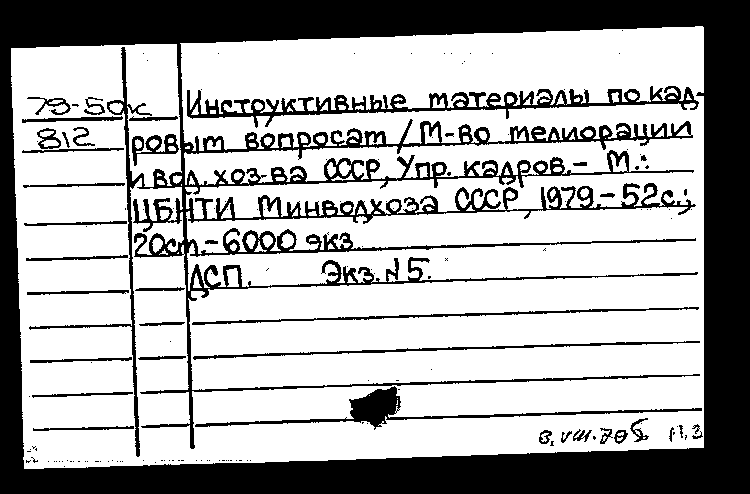 79-50к Инструктивные материалы по кад-
812 ровым вопросам / М-во мелиорации
и вод. хоз-ва СССР, Упр. кадров. - М.:
ЦБНТИ Минводхоза СССР, 1979. - 52с.;
20см. - 6000 экз
ДСП. Экз. №5.